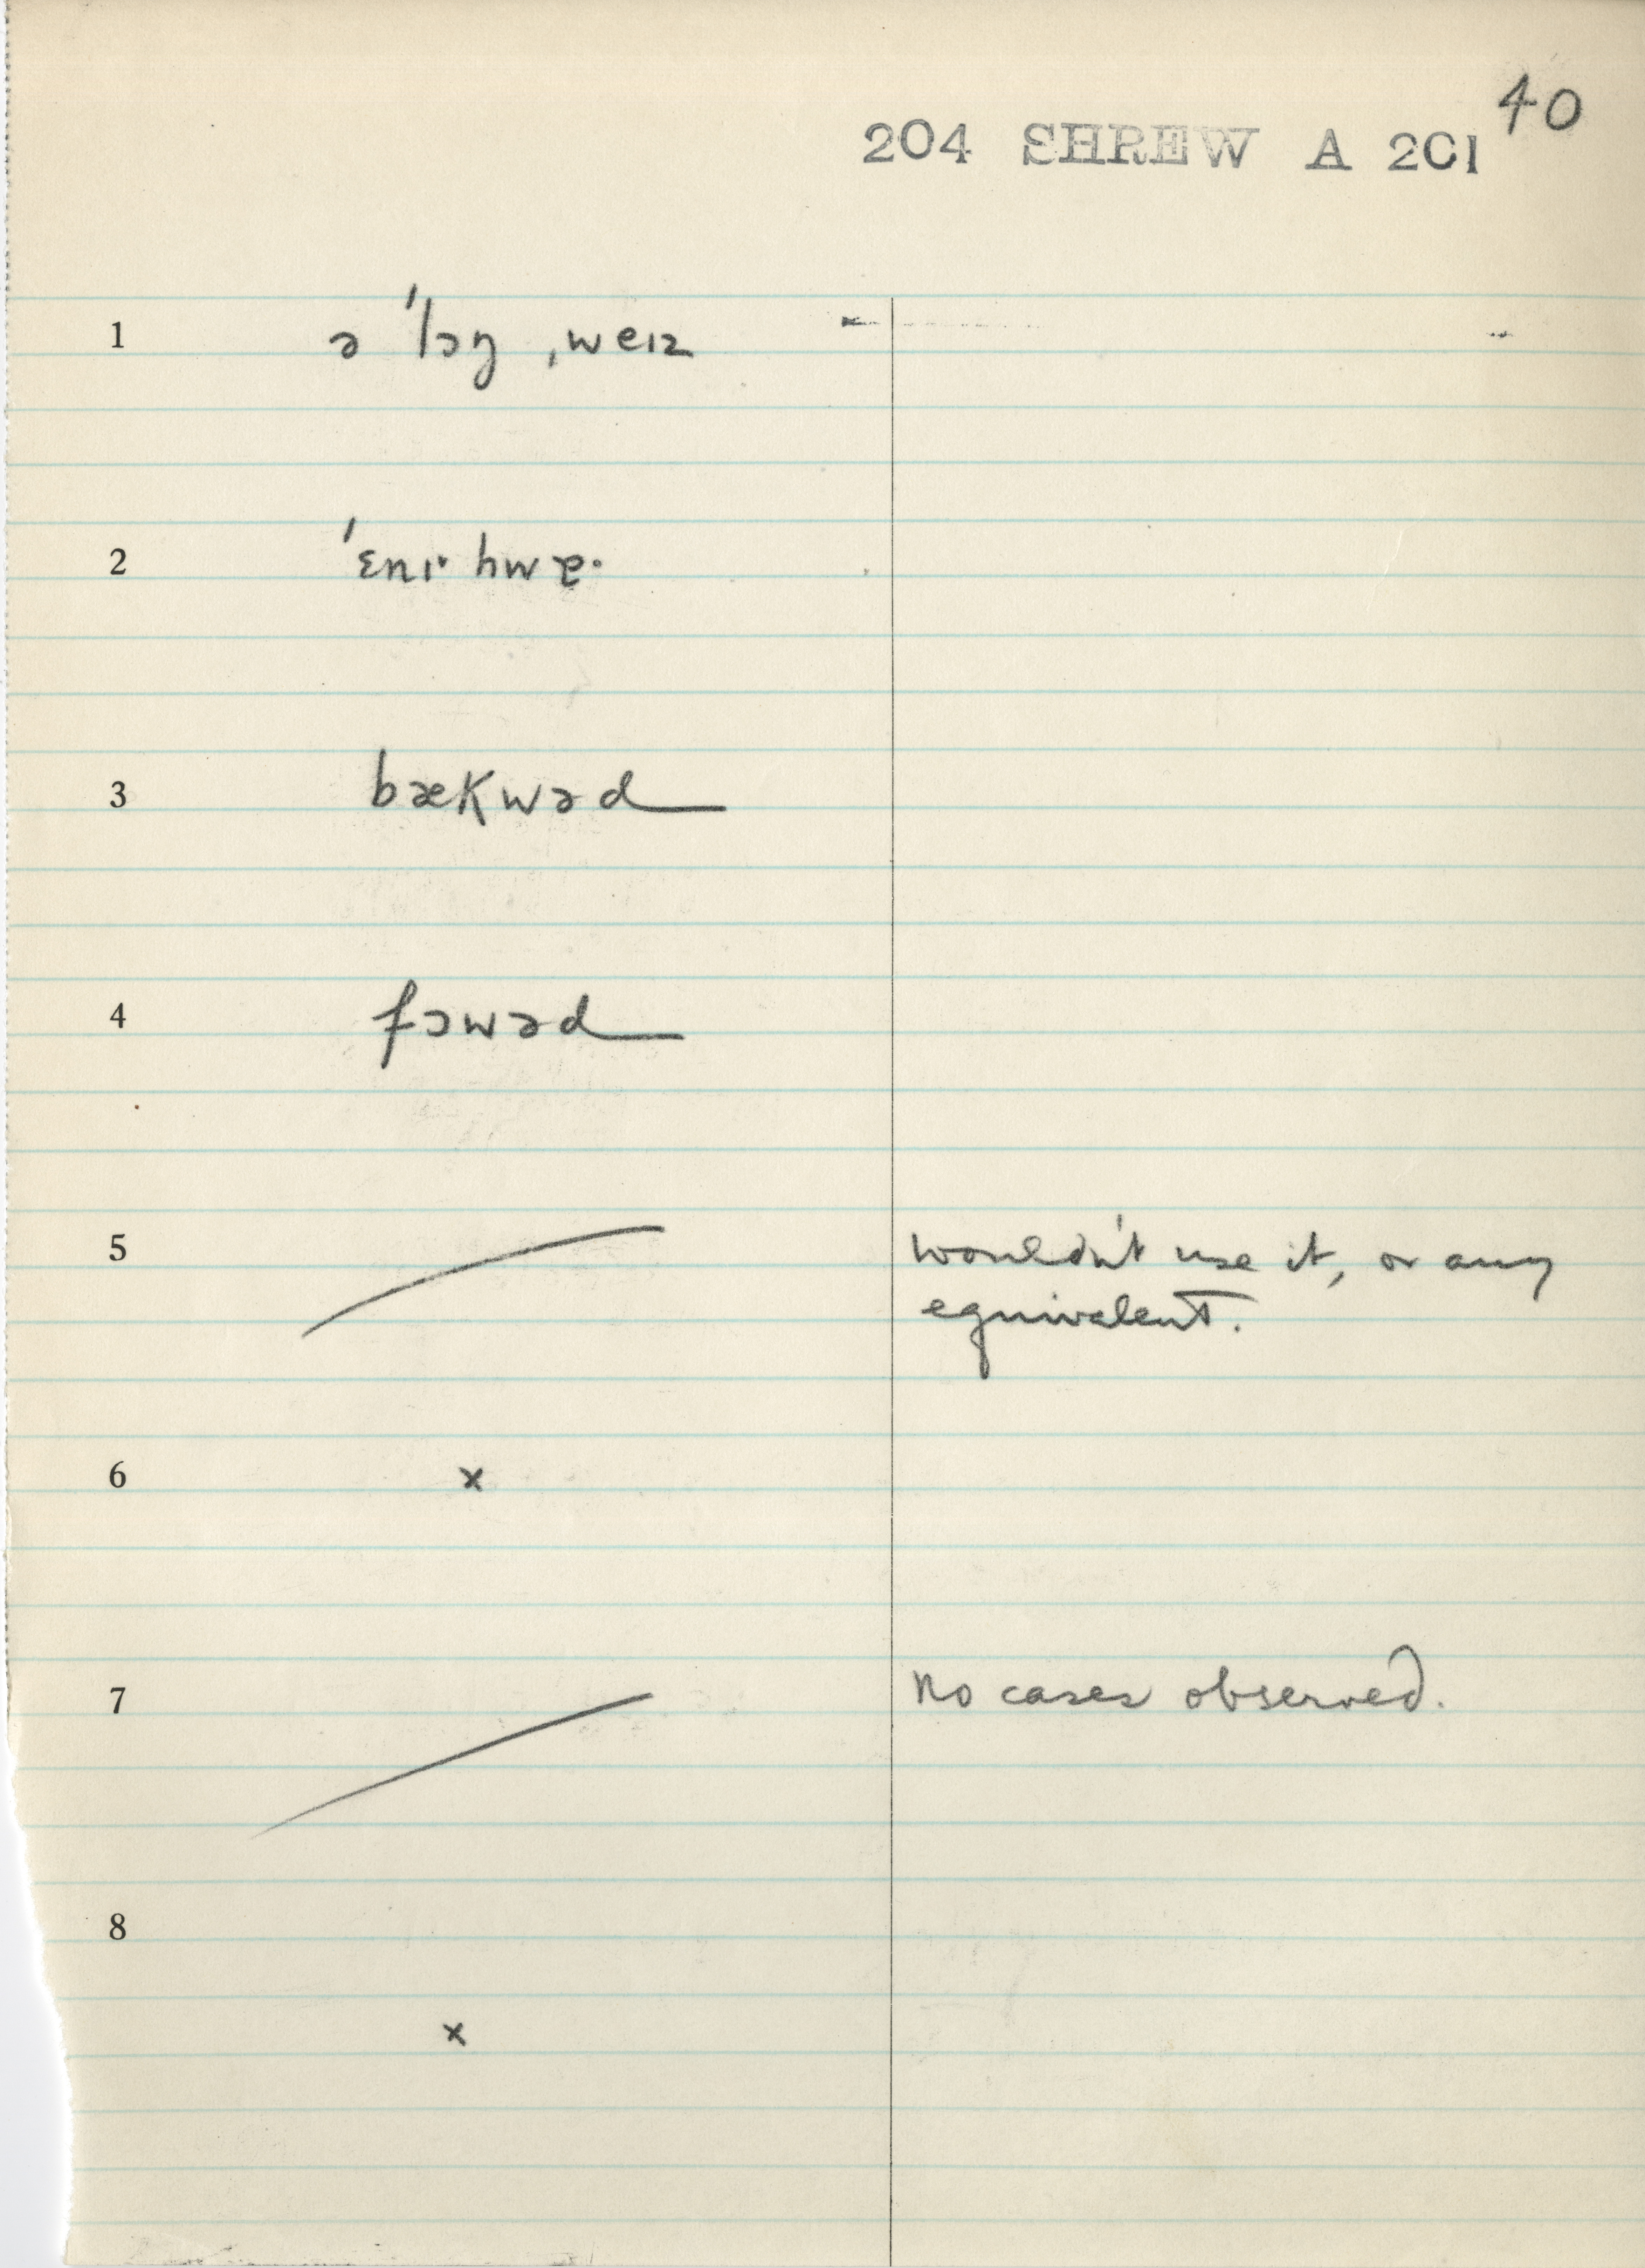 40
204 SHREW A 201
1 ə ˈlɔŋ ˌweɪz
2 ˈɛnɪ· hwɐ·
3 bækwəd
4 fɔwəd
5 wouldn't use it, or any
equivalent.
6 x
7 no cases observed.
8
x